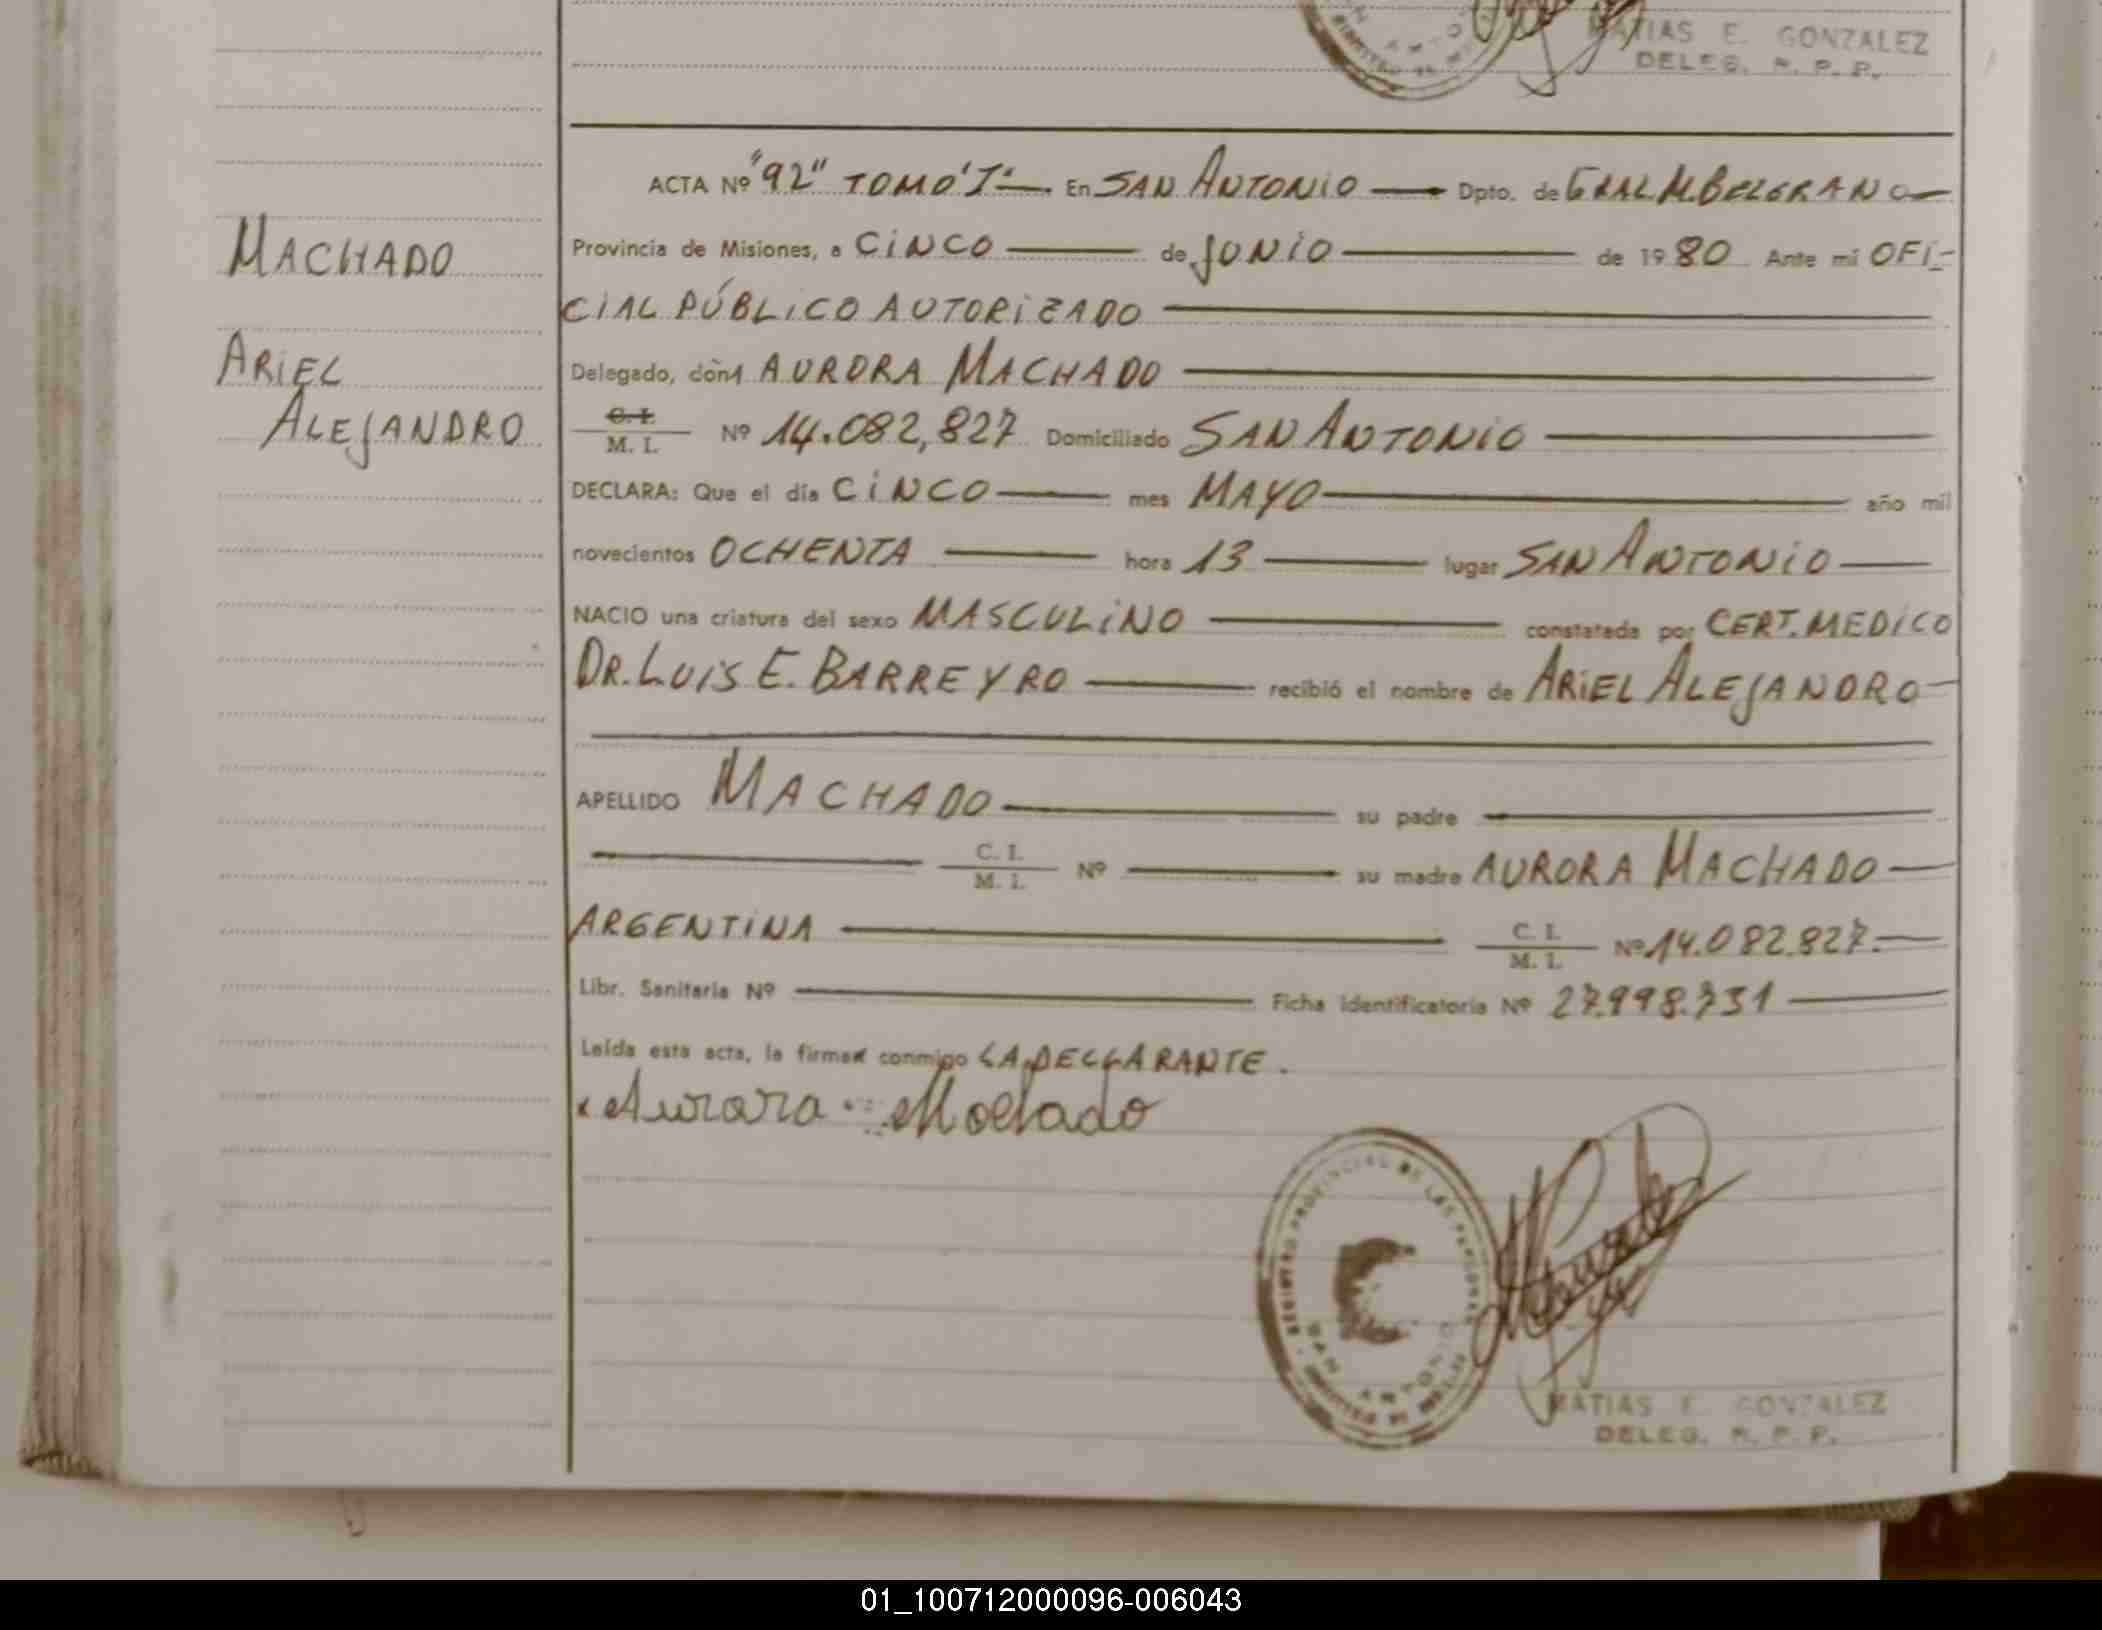 MATIAS E. GONZALEZ
DELEG. R. P. P.
MACHADO
ARIEL
ALEJANDRO
ACTA Nº "92" TOMO "I" En SAN ANTONIO Dpto. de GRAL. M. BELGRANO
Provincia de Misiones, a CINCO de JUNIO de 1980 Ante mi OFI-
CIAL PÚBLICO AUTORIZADO
Delegado, doña AURORA MACHADO
C. I.
M. I. Nº 14.082,827 Domiciliado SAN ANTONIO
DECLARA: Que el día CINCO mes MAYO año mil
novecientos OCHENTA hora 13 lugar SAN ANTONIO
NACIO una criatura del sexo MASCULINO constatada por CERT. MEDICO
DR. LUIS E. BARREYRO recibió el nombre de ARIEL ALEJANDRO
APELLIDO MACHADO su padre
C. I.
M. I. Nº su madre AURORA MACHADO
ARGENTINA C. I.
M. I. Nº 14.082.827.
Libr. Sanitaria Nº Ficha identificatoria Nº 27.998.731
Leída esta acta, la firma conmigo LA DECLARANTE.
Aurora Machado
REGISTRO PROVINCIAL DE LAS PERSONAS
SAN ANTONIO
MATIAS E. GONZALEZ
DELEG. R. P. P.
01_100712000096-006043